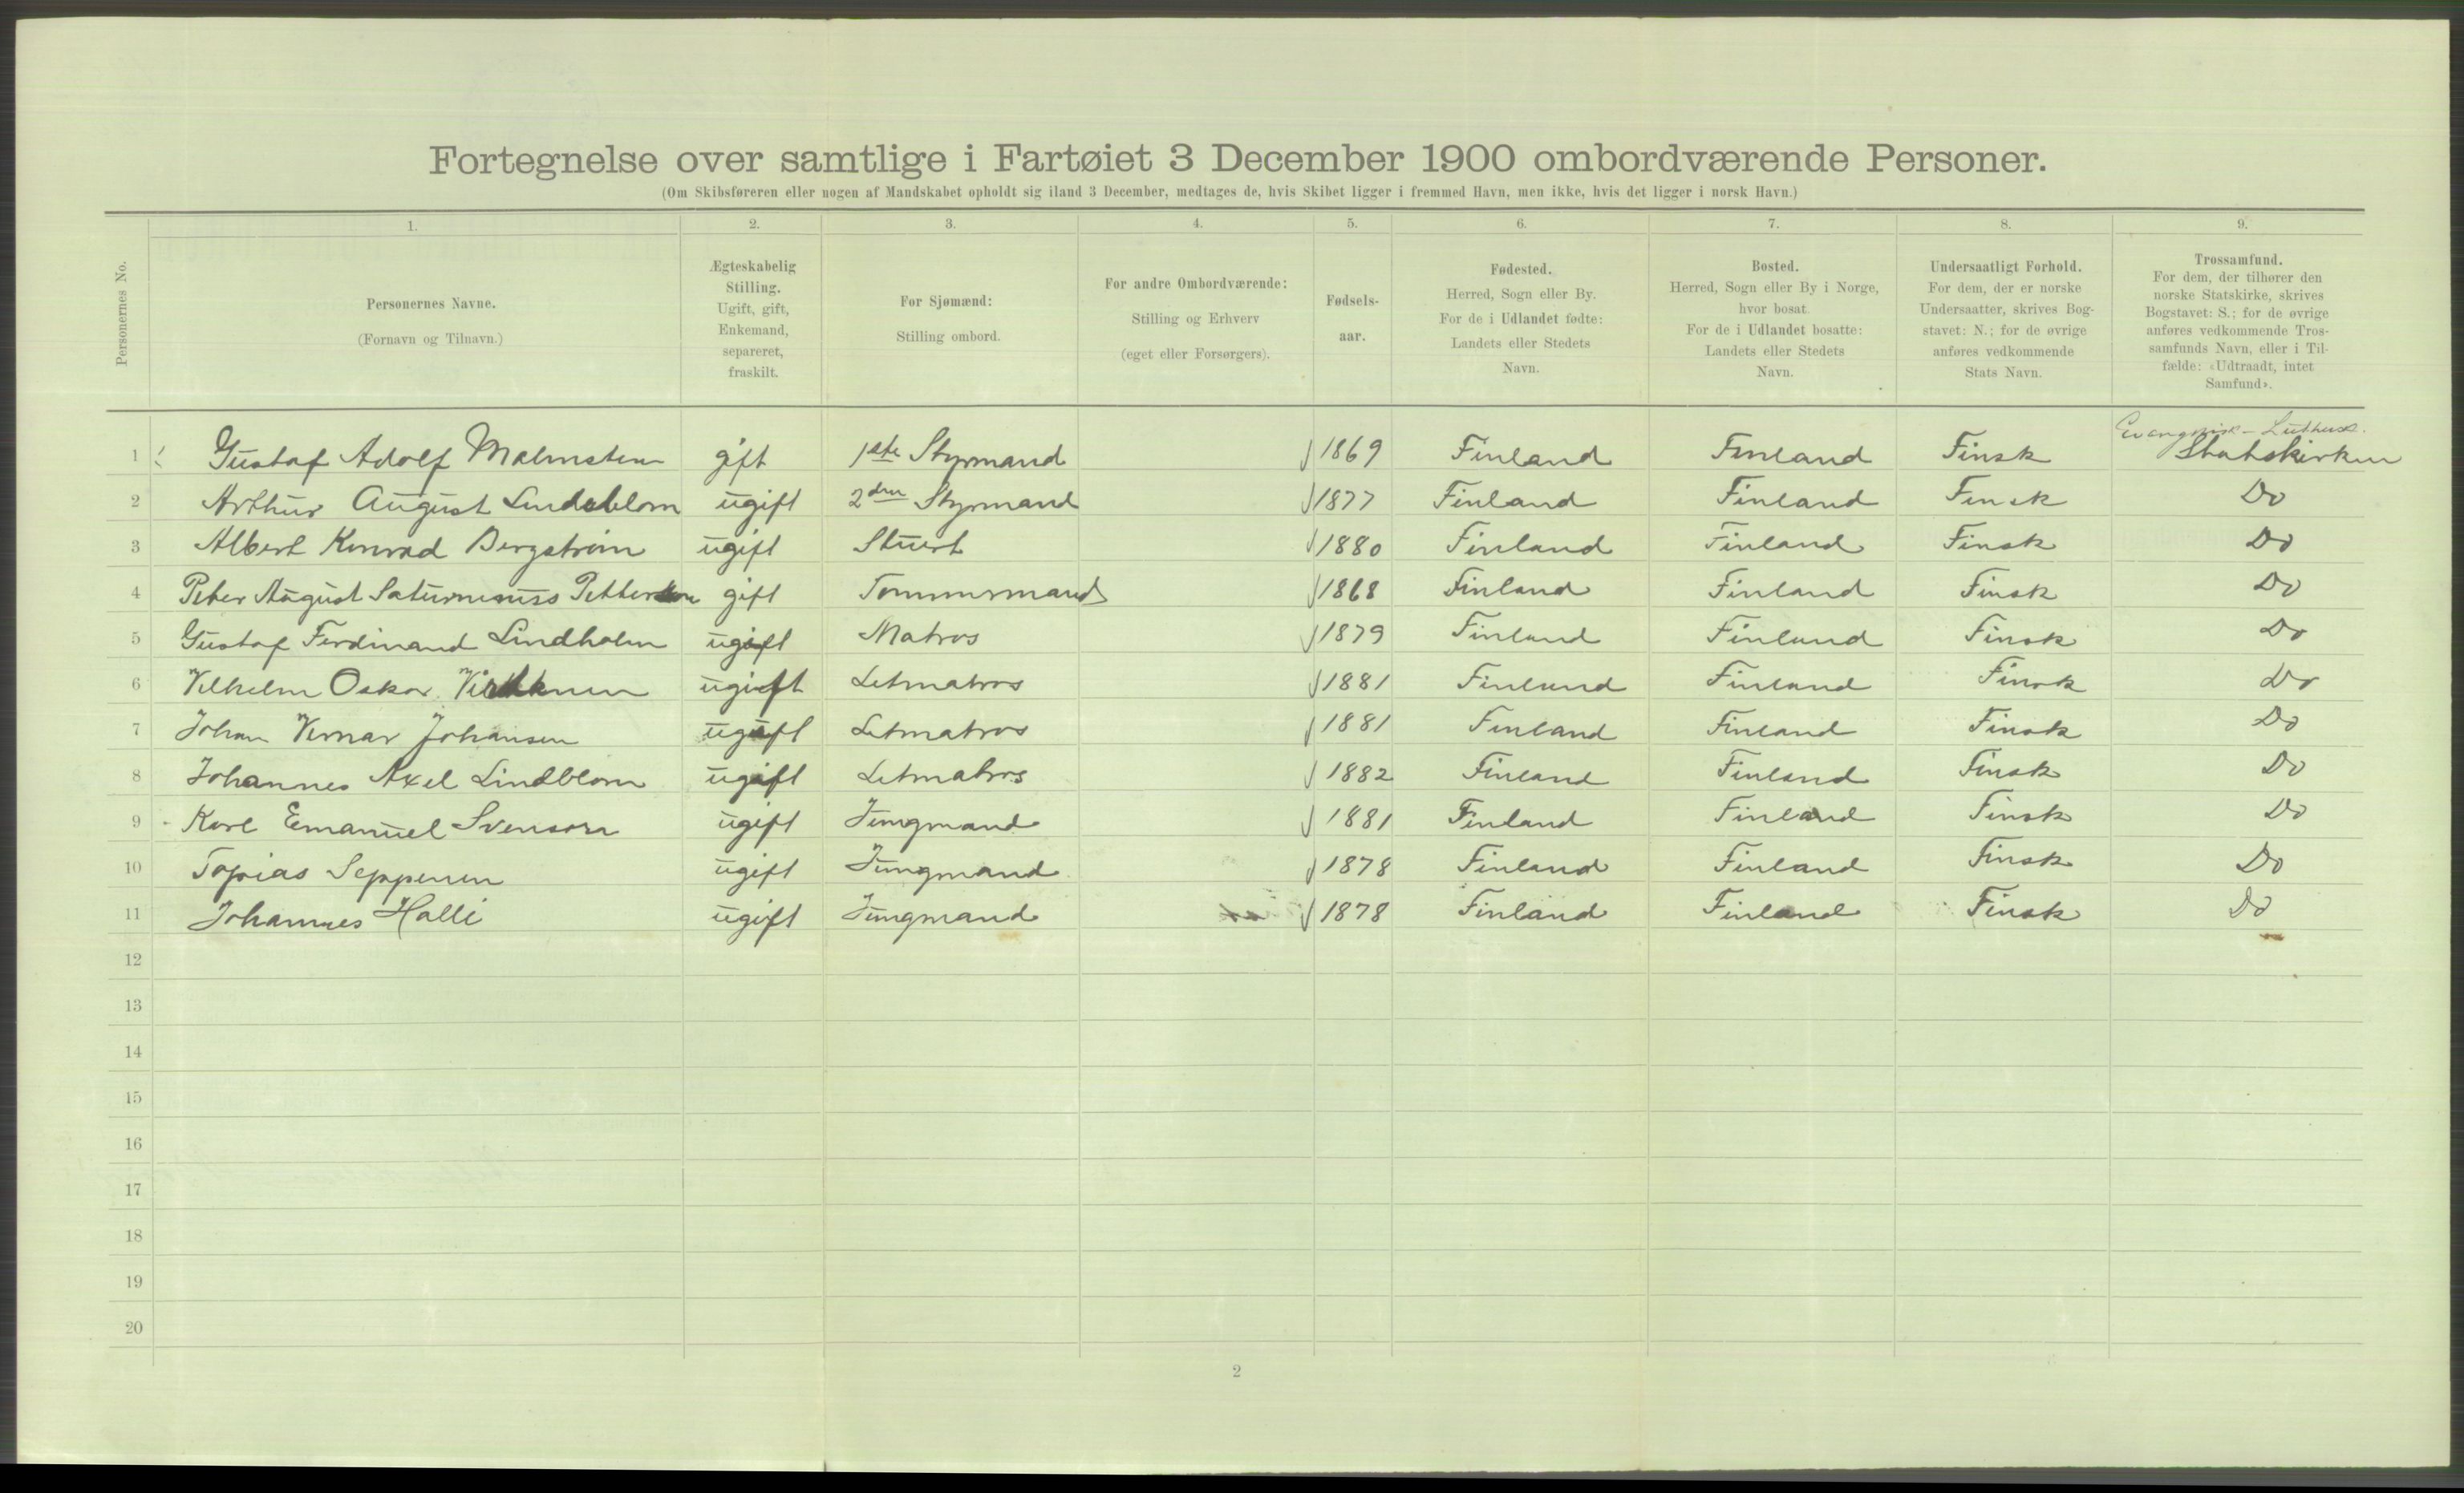 Fortegnelse over samtlige i Fartøiet 3 December 1900 ombordværende Personer.
(Om Skibsføreren eller nogen af Mandskabet opholdt sig iland 3 December, medtages de, hvis Skibet ligger i fremmed Havn, men ikke, hvis det ligger i norsk Havn.)
Personernes No.
1. 2. 3. 4. 5. 6. 7. 8. 9.
Personernes Navne.
(Fornavn og Tilnavn.)
Ægteskabelig
Stilling.
Ugift, gift,
Enkemand,
separeret,
fraskilt.
For Sjømænd:
Stilling ombord.
For andre Ombordværende:
Stilling og Erhverv
(eget eller Forsørgers).
Fødsels-
aar.
Fødested.
Herred, Sogn eller By.
For de i Udlandet fødte:
Landets eller Stedets
Navn.
Bosted.
Herred, Sogn eller By i Norge,
hvor bosat.
For de i Udlandet bosatte:
Landets eller Stedets
Navn.
Undersaatligt Forhold.
For dem, der er norske
Undersaatter, skrives Bog-
stavet: N.; for de øvrige
anføres vedkommende
Stats Navn.
Trossamfund.
For dem, der tilhører den
norske Statskirke, skrives
Bogstavet: S.; for de øvrige
anføres vedkommende Tros-
samfunds Navn, eller i Til-
fælde: «Udtraadt, intet
Samfund».
1 Gustaf Adolf Malmsten gift 1ste Styrmand 1869 Finland Finland Finsk Statskirken
2 Arthur August Lindeblom ugift 2den Styrmand 1877 Finland Finland Finsk Do
3 Albert Konrad Bergström ugift Stuert 1880 Finland Finland Finsk Do
4 Peter August Petterson gift Tømmermand 1868 Finland Finland Finsk Do
5 Gustaf Ferdinand Lindholm ugift Matros 1879 Finland Finland Finsk Do
6 Vilhelm Oskar ugift Letmatros 1881 Finland Finland Finsk Do
7 Johan Verner Johansen ugift Letmatros 1881 Finland Finland Finsk Do
8 Johannes Axel Lindblom ugift Letmatros 1882 Finland Finland Finsk Do
9 Karl Emanuel Svenson ugift Jungmand 1881 Finland Finland Finsk Do
10 Topias Seppenen ugift Jungmand 1878 Finland Finland Finsk Do
11 Johannes Halli ugift Jungmand 1878 Finland Finland Finsk Do
12
13
14
15
16
17
18
19
20
2